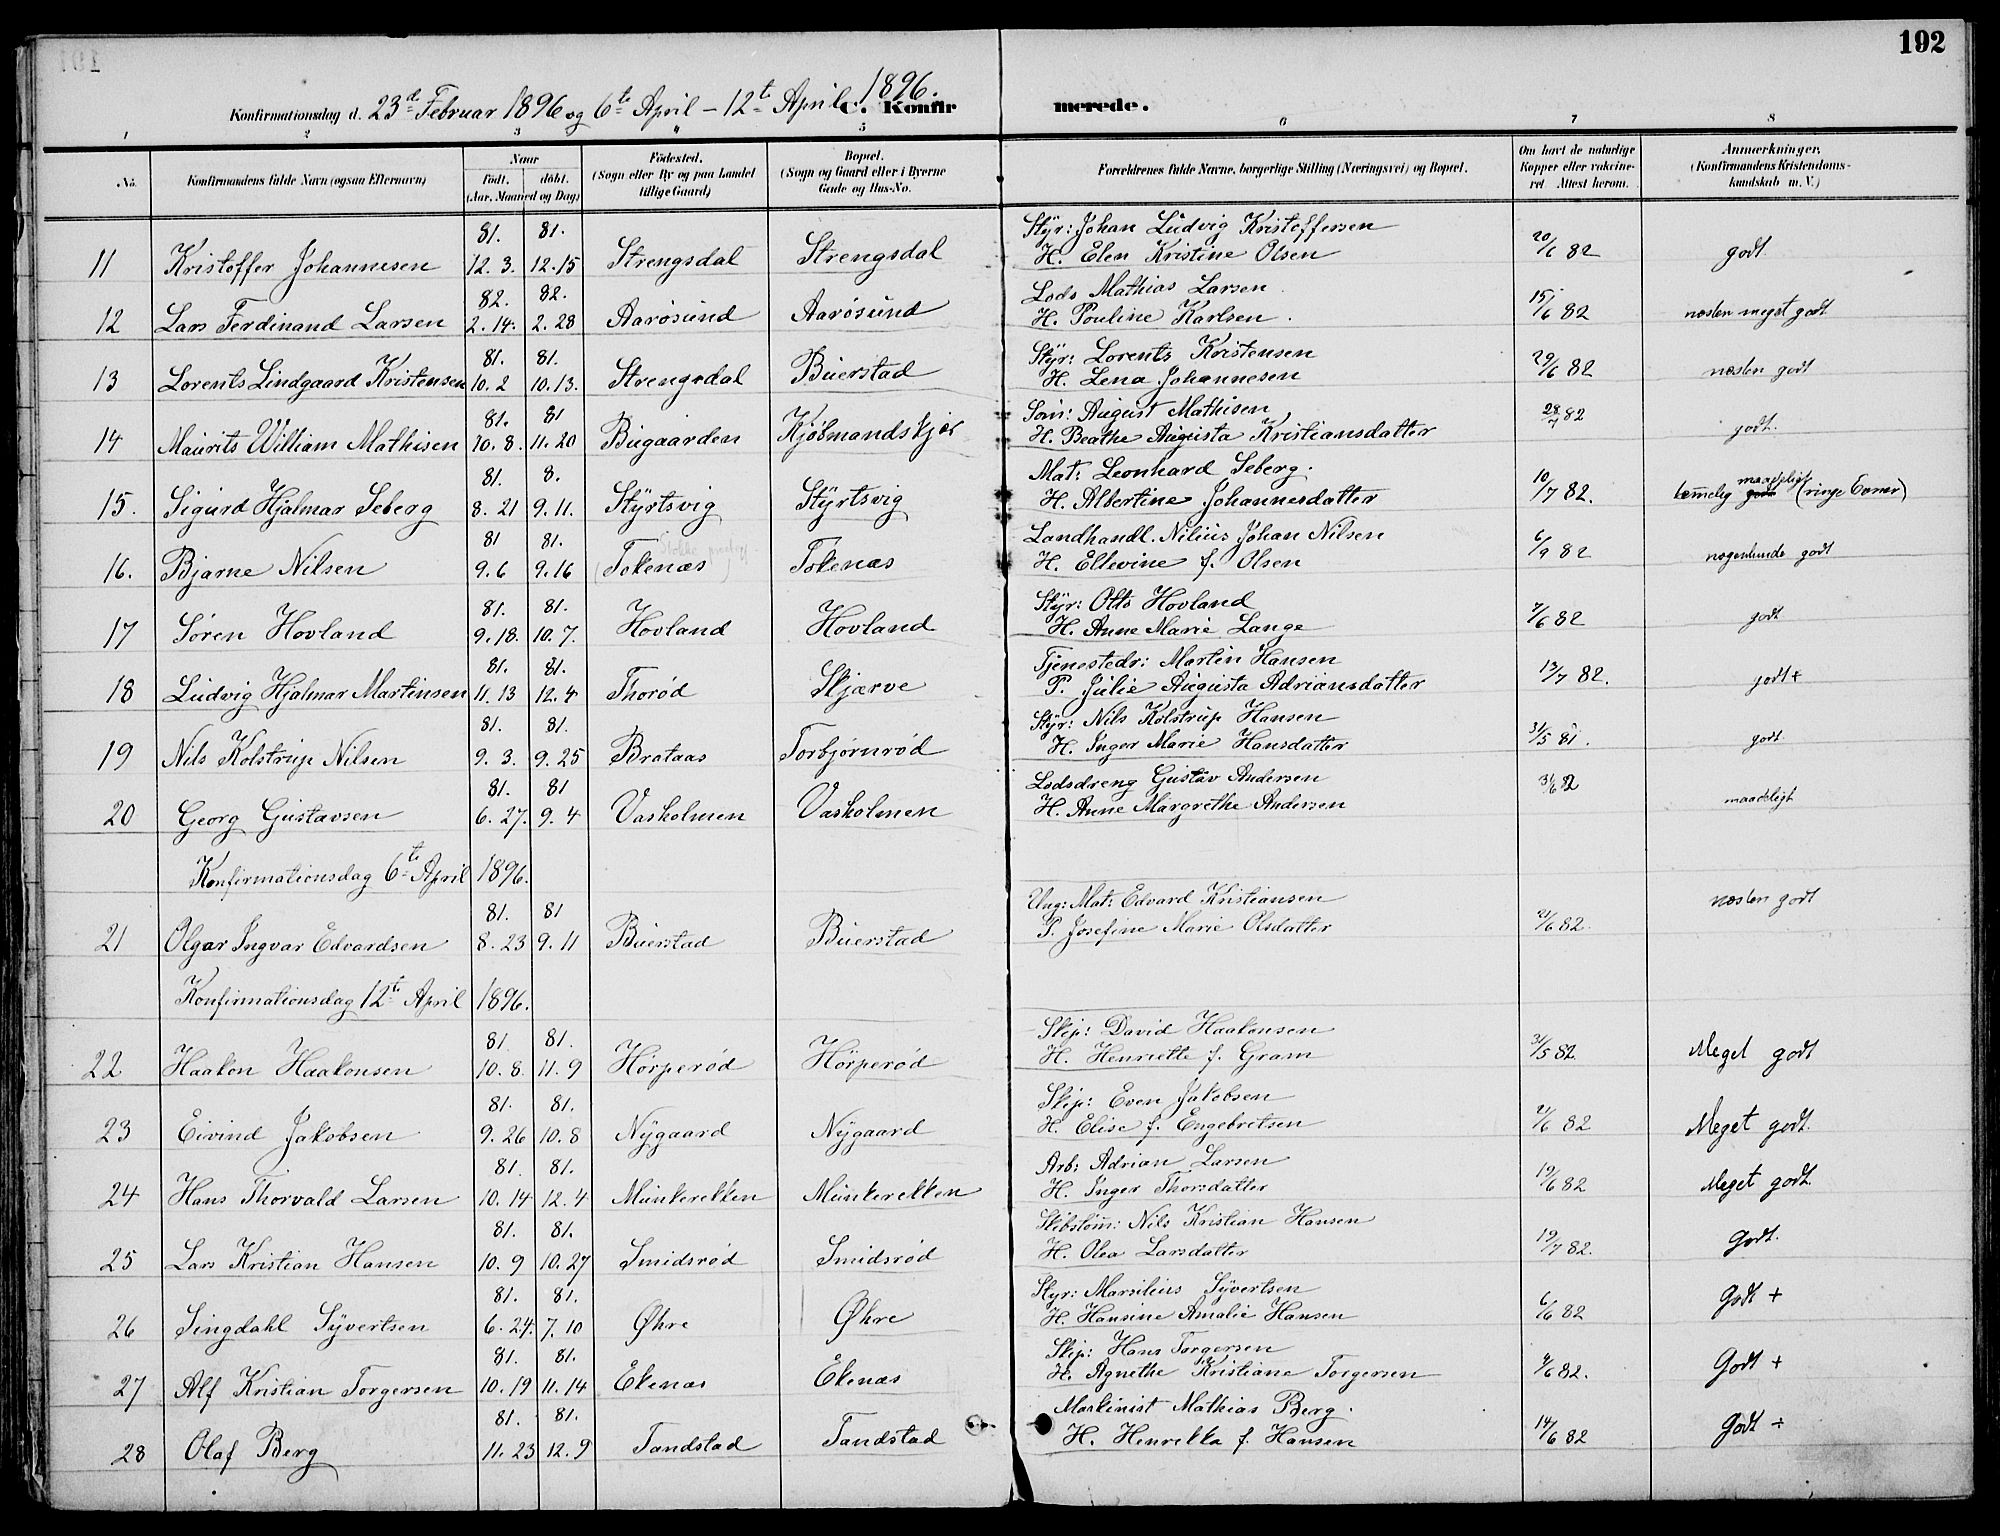 192
Konfirmationsdag d. 23de Februar 1896 og 6te April – 12te April 1896. C. Konfirmerede.
1 2 3 4 5 6 7 8
No. Konfirmandens fulde Navn (ogsaa Efternavn) Naar födt. döbt. (Aar, Maaned og Dag) Födested. (Sogn eller By og paa Landet tillige Gaard) Bopæl. (Sogn og Gaard eller i Byerne Gade og Hus-No. Forældrenes fulde Navne, borgerlige Stilling (Næringsvei) og Bopæl. Om havt de naturlige Kopper eller vakcineret Attest herom. Anmærkninger. (Konfirmandens Kristendomskundskab m. V.)
81. 81. Styr: Johan Ludvig Kristoffersen
11 Kristoffer Johannesen 12. 3. 12. 15 Strengsdal Strengsdal H. Elen Kristine Olsen 20/6 82 godt.
82. 82. Lods Mathias Larsen
12 Lars Ferdinand Larsen 2. 14. 2. 28 Aarøsund Aarøsund H. Pouline Karlsen. 15/6 82 næsten meget godt
81. 81. Styr: Lorents Kristensen
13 Lorents Lindgaard Kristensen 10. 2 10. 13. Strengsdal Buerstad H. Lena Johannesen 29/6 82 næsten godt
81. 81 Søm: August Mathisen
14 Maurits William Mathisen 10. 8. 11. 20 Bugaarden Kjøbmandskjær H. Beathe Augusta Kristiansdatter 28/7 82 godt.
81. 8. Mat: Leonhard Seberg.
15. Sigurd Hjalmar Seberg 8. 21 9. 11. Styrtsvig Styrtsvig H. Albertine Johannesdatter 10/7 82. temmelig maadeligt (ringe Evner)
81 81. Landhandl. Nilius Johan Nilsen
16. Bjarne Nilsen 9. 6 9. 16 (Tokenæs) Tokenæs H. Ellevine f. Olsen 6/9 82 nogenlunde godt
81. 81. Styr: Otto Hovland
17 Søren Hovland 9. 18. 10. 7. Hovland Hovland H. Anne Marie Lange 7/6 82 godt
81. 81. Tjenestedr: Martin Hansen
18 Ludvig Hjalmar Martinsen 11. 13 12. 4 Thorød Skjærve P. Julie Augusta Adriansdatter 13/7 82. godt +
81. 81. Styr: Nils Kolstrup Hansen
19 Nils Kolstrup Nilsen 9. 3. 9. 25 Brataas Torbjørnrød H. Inger Marie Hansdatter 31/5 81. godt
81. 81 Lodsdreng Gustav Andersen
20 Georg Gustavsen 6. 27. 9. 4 Vasholmen Vasholmen H. Anne Margrethe Andersen maadeligt
Konfirmationsdag 6te April 1896.
81. 81 Ung: Mat: Edvard Kristiansen
21 Olgar Ingvar Edvardsen 8. 23 9. 11 Buerstad Buerstad P. Josefine Marie Olsdatter 21/6 82. næsten godt
Konfirmationsdag 12te April 1896.
81 81. Skip: David Haakonsen
22 Haakon Haakonsen 10. 8. 11. 9 Hørperød Hørperød H. Henriette f. Gram 31/5 82. Meget godt
81. 81. Skip: Even Jakobsen
23 Eivind Jakobsen 9. 26 10. 8 Nygaard Nygaard H. Elise f. Engebretsen 21/6 82 Meget godt.
81. 81. Arb: Adrian Larsen
24 Hans Thorvald Larsen 10. 14 12. 4 Munkerekken Munkerekken H. Inger Thorsdatter 19/6 82 Meget godt.
81. 81. Skibstøm: Nils Kristian Hansen
25 Lars Kristian Hansen 10. 9 10. 27 Smidsrød Smidsrød H. Olea Larsdatter 19/7 82. Godt.
81. 81. Styr: Marsilius Syvertsen
26 Singdahl Syvertsen 6. 24. 7. 10 Øhre Øhre H. Hansine Amalie Hansen 6/6 82 Godt +
81. 81. Skip: Hans Torgersen
27 Alf Kristian Torgersen 10. 19 11. 14 Ekenæs Ekenæs H. Agnethe Kristiane Torgersen 9/6 82. Godt +
81. 81. Maskinist Mathias Berg.
28 Olaf Berg 11. 23 12. 9 Tandstad Tandstad H. Henrikka f. Hansen 14/6 82 Godt +